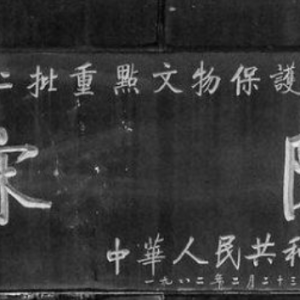 二批重點文物保護
宋
中華人民共和
一九八二年二月二十三